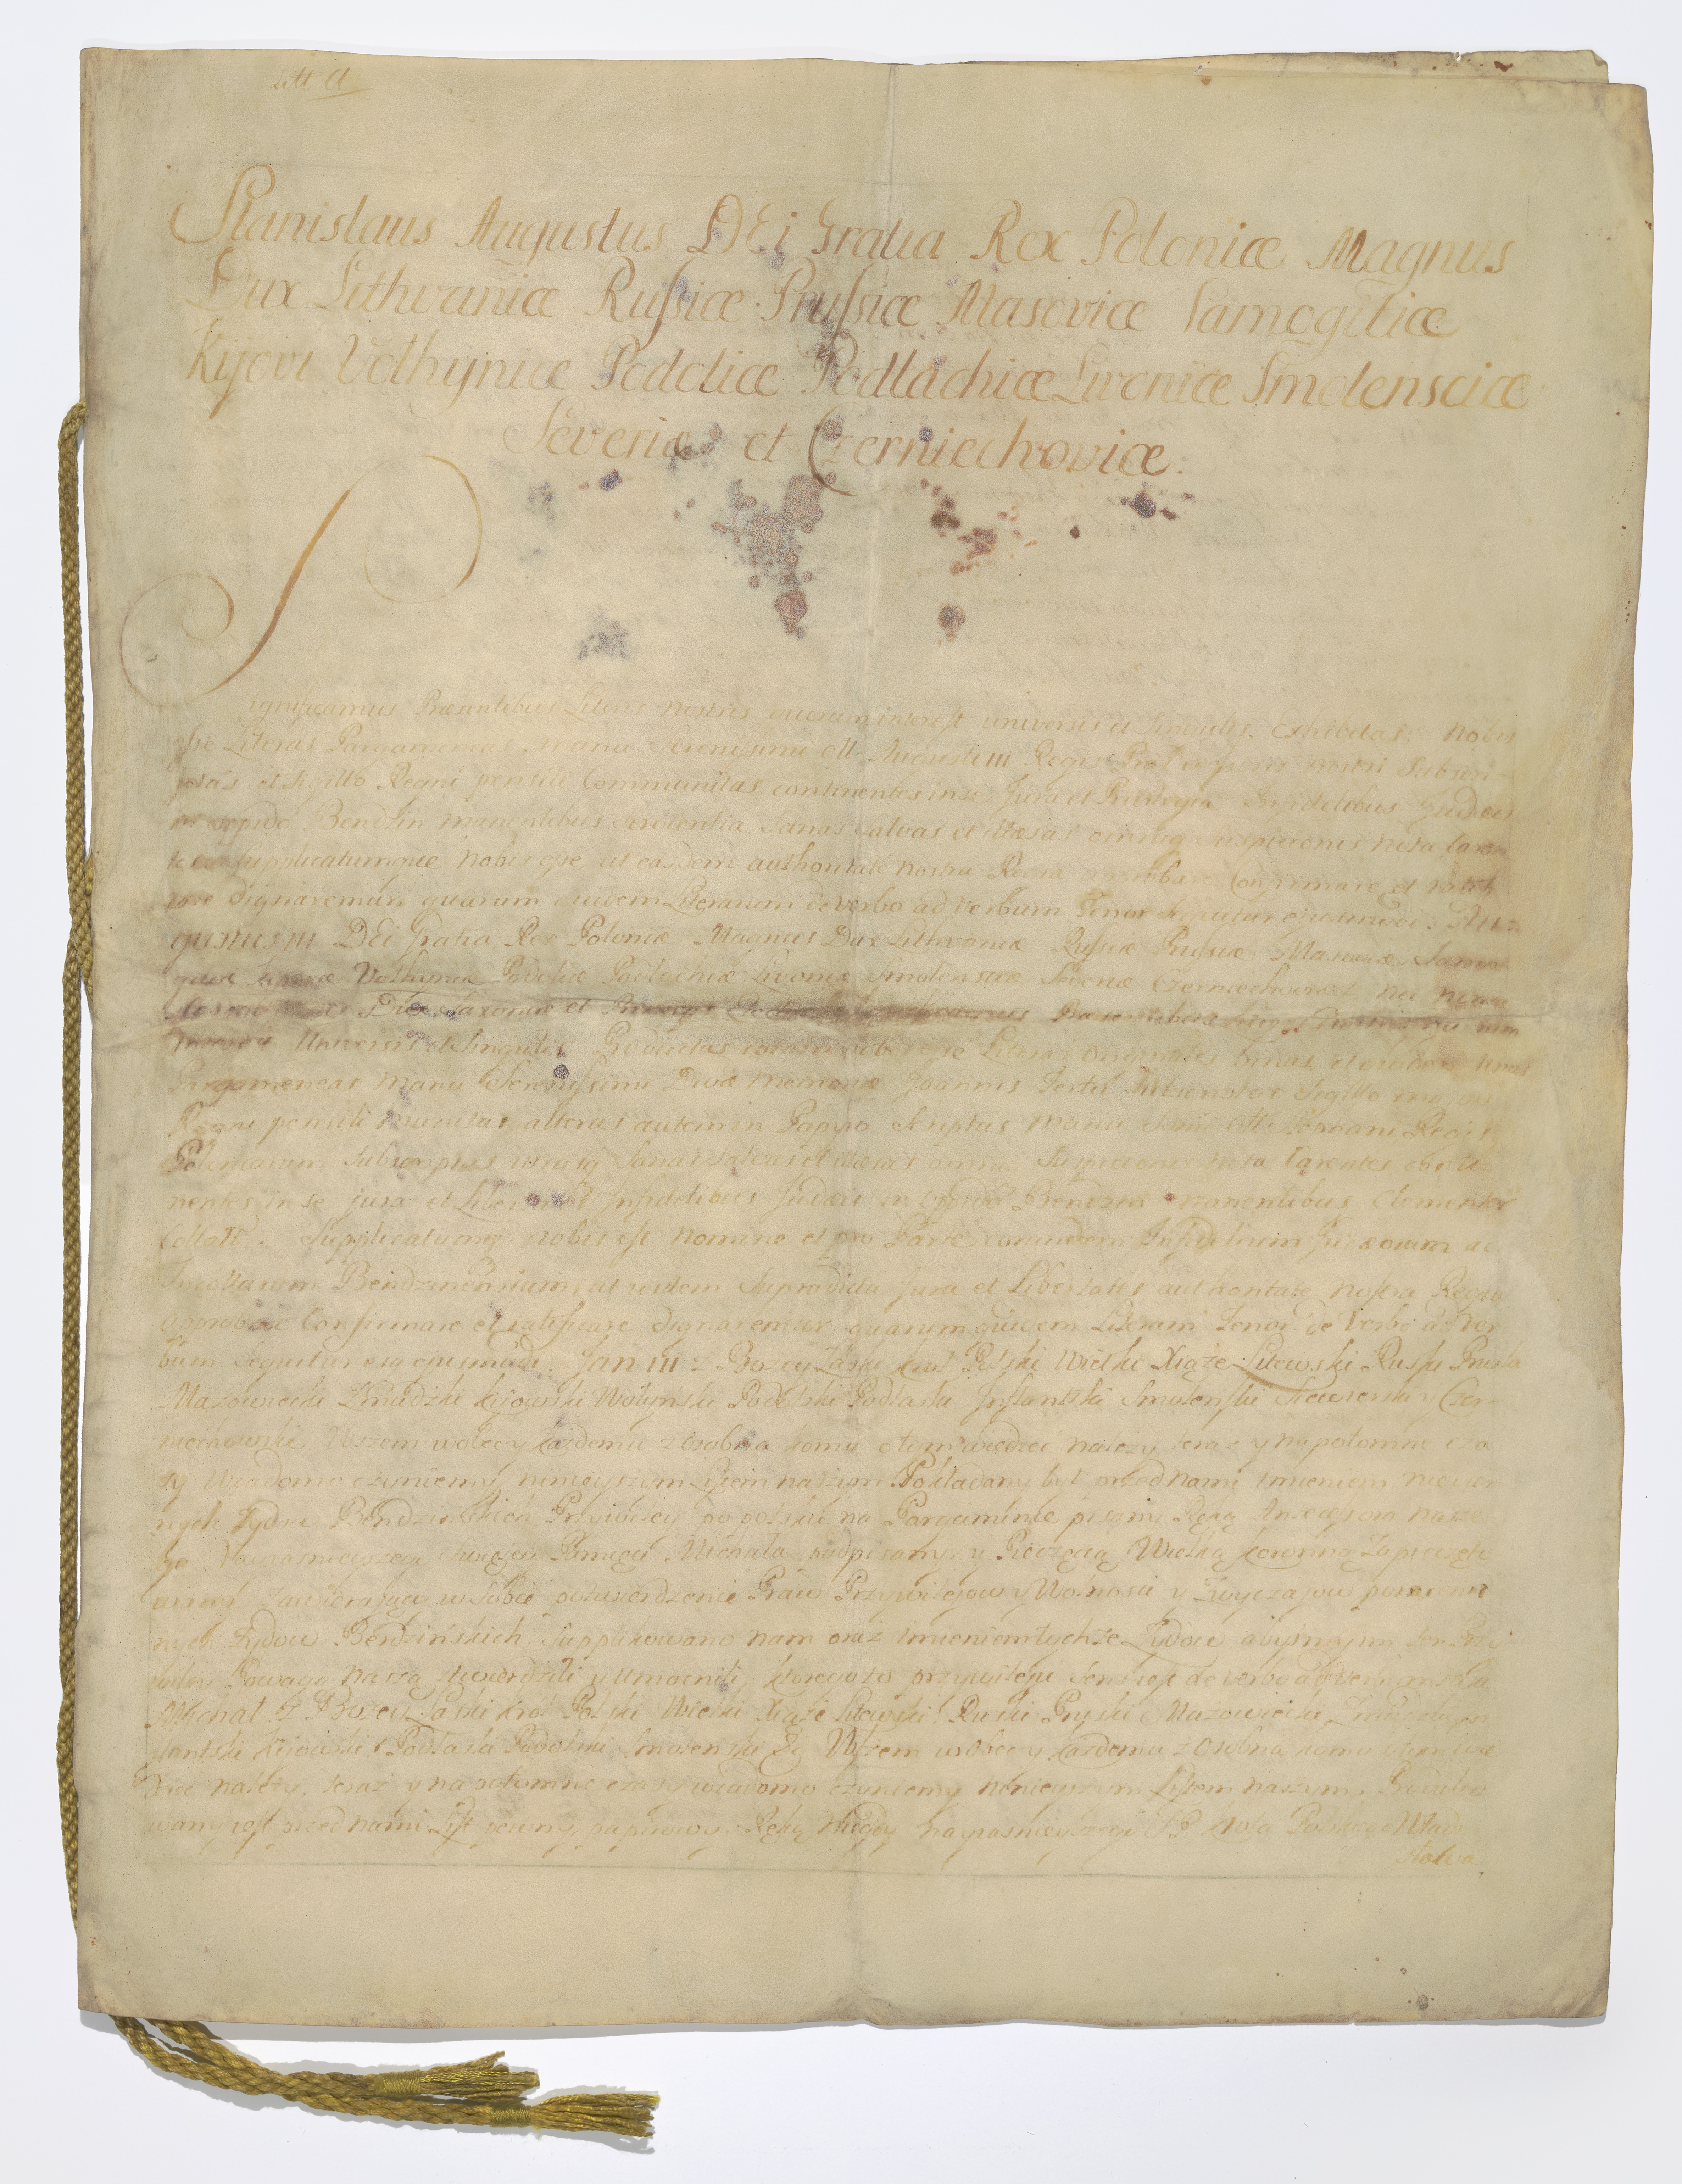 Litt A
Stanislaus Augustus DEi Gratia Rex Poloniæ Magnus
Dux Lithvaniæ Rußiæ Prußiæ Masoviæ Samogitiæ
Kijoviæ Volhyniæ Podoliæ Podlachiæ Livoniæ Smolensciæ
Severiæ et Czerniechoviæ.
Significamus Præsentibus Literis nostris quorum interest universis et Singulis. Exhibitas Nobis
eße Literas Pargameneas manu Serenissimi olim Augusti III Regis Prædecessoris nostri Subscri-
ptas et Sigillo Regni pensili Communitas continentes in se Jura et Privilegia Infidelibus Judæis
in oppido Bendzin manentibus servientia Sanas Salvas et illæsas omniq suspicionis nota Caren
tes Supplicatumque Nobis eße ut easdem authoritate nostra Regia approbare Confirmare et ratifi
care dignaremur. quarum quidem Literarum de verbo ad verbum Tenor sequitur ejusmodi. Au-
gustus III DEi Gratia Rex Poloniæ Magnus Dux Lithvaniæ Rußiæ Prußiæ Masoviæ Samo
gitiæ Kijoviæ Volhyniæ Podoliæ Podlachiæ Livoniæ Smolensciæ Severiæ Czerniechoviæ nec non
Dux Saxoniæ et Princeps Elector Præsentibus
Universis et Singulis Productas coram nobis eße Literas originales binas
Pargameneas manu Serenissimi Divæ memoriæ Joannis Tertii Subscriptas Sigillo majori
Regni pensili munitas alteras autem in Papyro Scriptas manu Regis
Poloniarum Subscriptas Sanas Salvas et illæsas omni Suspicionis nota Carentes conti-
nentes in se jura et Libertates Infidelibus Judæis in oppido Bendzin manentibus Clementer
Collatas. Supplicatumq nobis est nomine et pro Parte eorundem Infidelium Judæorum ac
Incolarum Bendzinensium, ut eisdem Supradicta Jura et Libertates authoritate nostra Regia
approbare Confirmare et ratificare dignaremur quarum quidem Literarum Tenor de Verbo ad Ver
bum Sequitur ejusmodi. Jan III z Bozey Łaski Krol Polski Wielki Xiąze Litewski Ruski Pruski
Mazowiecki Zmudzki Kijowski Wołynski Podolski Podlaski Inflantski Smolenski Siewierski y Czer-
niechowski Wszem wobec y kazdemu z osobna komu o tym wiedzieć nalezy teraz y na potomne cza
sy Wiadomo czyniemy ninieyszym Listem naszym. Pokładany był przed nami imieniem niewier
nych Zydow Bendzinskich Przywiley po polsku na Pargaminie pisany Ręką Antecessora nasze
go Nayjasnieyszego Swiętey Pamięci Michała podpisany, y Pieczęcią Wielką Koronną Zapieczęto
wany Zawierający w Sobie potwierdzenie Praw Przywilejow y Wolnosci y Zwyczajow pomienio
nych Zydow Będzińskich. Supplikowano nam oraz imieniem tychze Zydow abysmy im ten Przy
wiley Powagą naszą stwierdzili y umocnili, ktorego to przywileju Sens jest de verbo ad verbum taki
Michał z Bozey Łaski Krol Polski Wielki Xiąze Litewski Ruski Pruski Mazowiecki Zmudzki
Inflantski Kijowski Podlaski Podolski Smolenski Wszem wobec y kazdemu z Osobna komu o tym wie
dziec nalezy, teraz y na potomne czasy wiadomo czyniemy ninieyszym Listem naszym, Produko
wany jest przed nami List pewny, papirowy Ręką Niegdy Nayjasnieyszego Krola Polskiego Wład
sława